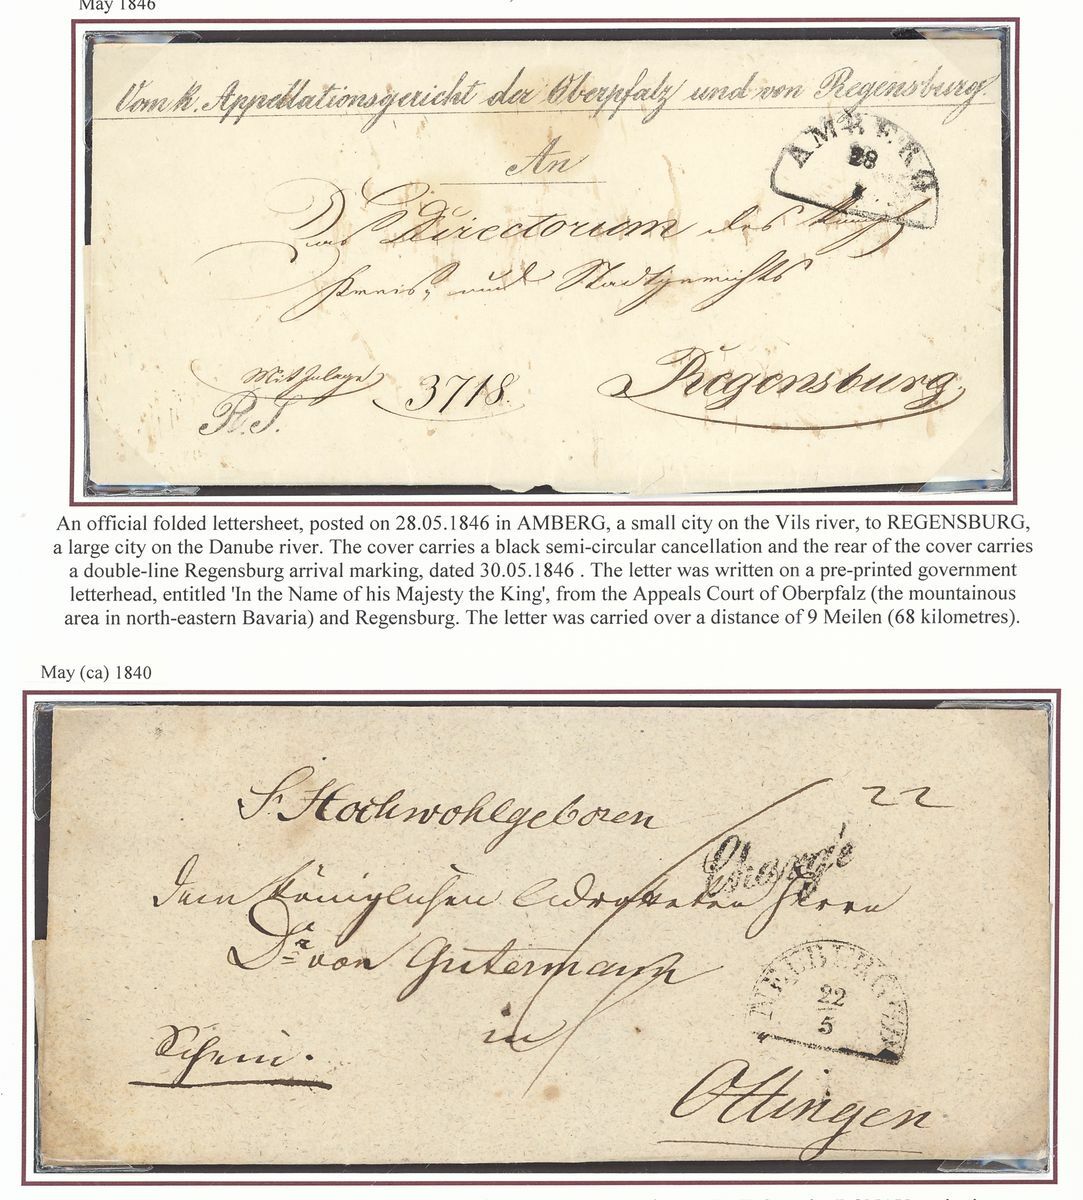 May 1846
Vom k. Appellationsgericht der Oberpfalz und von Regensburg.
AMBERG
28
An
Das Directorium des
Kreis- und Stadtgerichts
3718.
Regensburg
R.S.
An official folded lettersheet, posted on 28.05.1846 in AMBERG, a small city on the Vils river, to REGENSBURG,
a large city on the Danube river. The cover carries a black semi-circular cancellation and the rear of the cover carries
a double-line Regensburg arrival marking, dated 30.05.1846 . The letter was written on a pre-printed government
letterhead, entitled 'In the Name of his Majesty the King', from the Appeals Court of Oberpfalz (the mountainous
area in north-eastern Bavaria) and Regensburg. The letter was carried over a distance of 9 Meilen (68 kilometres).
May (ca) 1840
22
S. Hochwohlgeboren
Chargé
dem königlichen Advokaten Herrn
Dr. von Gutermann
NEUBURG
22
5
in
Schein.
Ottingen